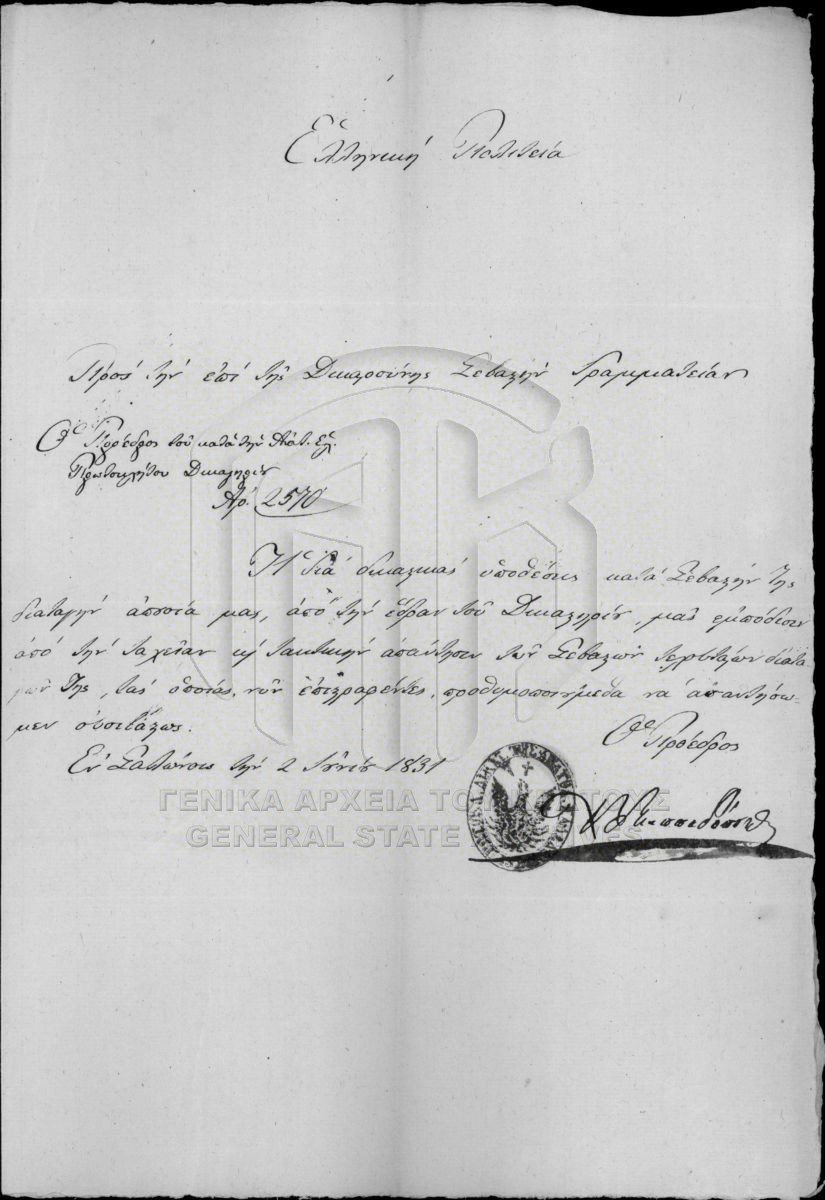 Ἑλληνικὴ Πολιτεία
Πρὸς τὴν ἐπὶ τῆς Δικαιοσύνης Σεβαστὴν Γραμματείαν
Ὁ Πρόεδρος τοῦ κατὰ τὴν Ἀνατ. Ἑλ.
Πρωτοκλήτου Δικαστηρίου
Ἀρ. 2570
Ἡ διὰ δικαστικὰς ὑποθέσεις κατὰ Σεβαστήν της
διαταγὴν ἀπουσία μας, ἀπὸ τὴν ἕδραν τοῦ Δικαστηρίου, μᾶς ἐμπόδισεν
ἀπὸ τὴν ταχεῖαν καὶ τακτικὴν ἀπάντησιν τῶν Σεβαστῶν διατα-
γῶν της, τὰς ὁποίας, νῦν ἐπιστραφέντες, προθυμοποιούμεθα νὰ ἀπαντήσω-
μεν
Ὁ Πρόεδρος
Ἐν Σαλώνοις τὴν 2 Ἰουνίου 1831
ΓΕΝΙΚΑ ΑΡΧΕΙΑ ΤΟΥ ΚΡΑΤΟΥΣ
GENERAL STATE ARCHIVES